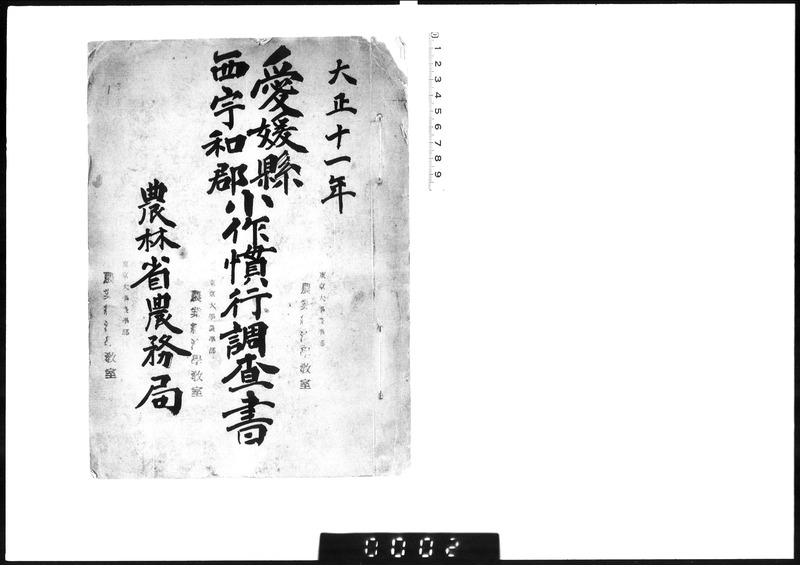 大正十一年
愛媛縣
西宇和郡
小作慣行調査書
農林省農務局
東京大學農學部
農業経済學教室
東京大學農學部
農業経済學教室
東京大學農學部
教室
0 1 2 3 4 5 6 7 8 9
0002